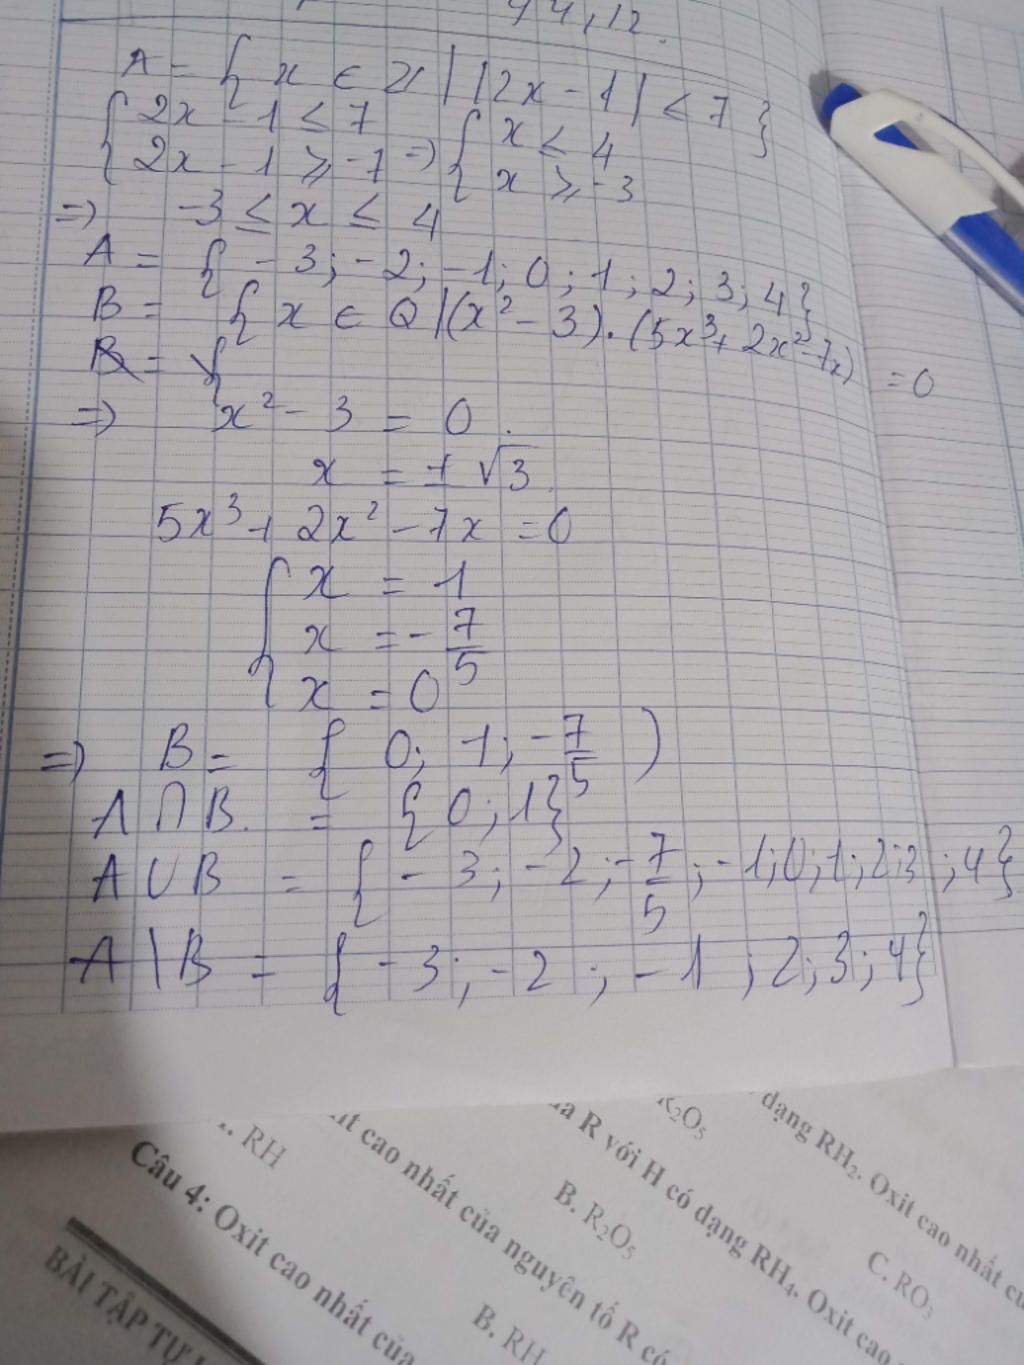 44,12.
A = { x ∈ Z | |2x - 1| ≤ 7 }
{ 2x - 1 ≤ 7
{ 2x - 1 ≥ -7 => { x ≤ 4
{ x ≥ -3
=> -3 ≤ x ≤ 4
A = { -3; -2; -1; 0; 1; 2; 3; 4}
B = { x ∈ Q | (x² - 3). (5x³ + 2x² - 7x) = 0
B = {
=> x² - 3 = 0.
x = ± √3
5x³ + 2x² - 7x = 0
{ x = 1
{ x = -7/5
{ x = 0
=> B = { 0; 1; -7/5 )
A ∩ B. = { 0; 1}
A ∪ B = { -3; -2; -7/5; -1; 0; 1; 2; 3; 4}
A \ B = { -3; -2; -1; 2; 3; 4}
R₂O₅
dạng RH₂. Oxit cao nhất
R với H có dạng RH₄. Oxit cao
B. R₂O₅
C. RO₃
cao nhất của nguyên tố R có
RH
B. RH
Câu 4: Oxit cao nhất của
BÀI TẬP TỰ